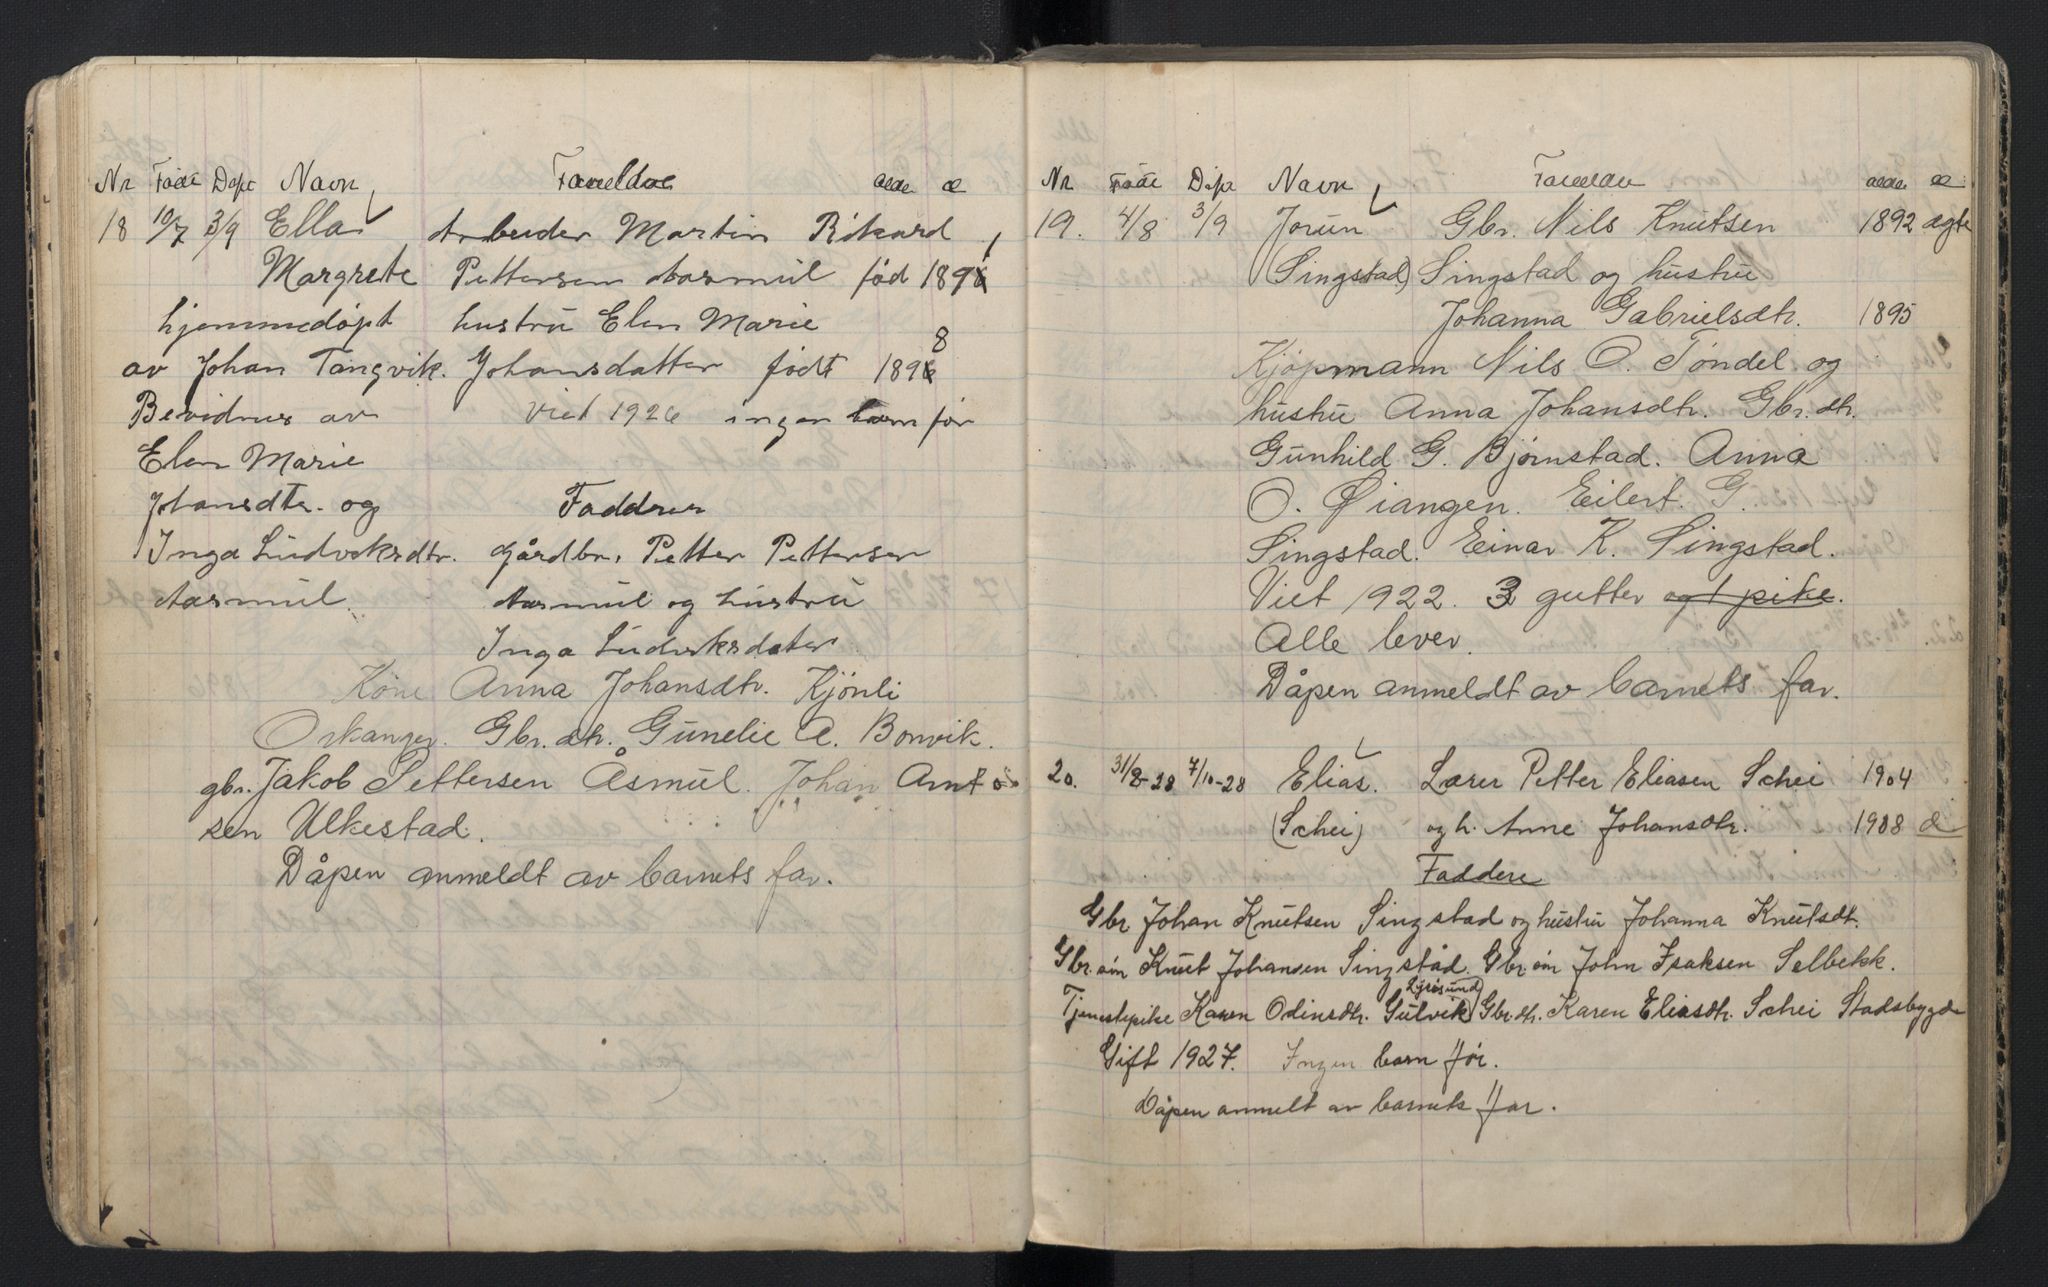 Nr Føde Døpt Navn Foreldre alder æ
18 10/7 3/9 Ella Arbeider Martin Rikard
Margrete Pettersen Aasmul fød 189
hjemmedøpt hustru Elen Marie
8
av Johan Tangvik. Johansdatter født 189
Bevidnes av Viet 1926 ingen barn før
Elen Marie
Johansdtr. og Faddere
Inga Ludveksdtr. gårdbr. Petter Pettersen
Aasmul. Aasmul og hustru
Inga Ludveksdater
Kone Anna Johansdtr. Kjönli
Orkanger. Gbr. dtr. Gunelie A. Bonvik.
gbr. Jakob Pettersen Åsmul. Johan Arnt
sen Ulkestad.
Dåpen anmeldt av barnets far.
Nr Føde Døpt Navn Foreldre alder æ
19. 4/8 3/9 Jorun Gbr. Nils Knutsen 1892 ægte
(Singstad) Singstad og hustru
Johanna Gabrielsdtr. 1895
Kjøpmann Nils O. Töndel og
hustru Anna Johansdtr. Gbr. dtr.
Gunhild G. Bjørnstad. Anna
O. Øiangen. Eilert. G.
Singstad. Einar K. Singstad.
Viet 1922. 3 gutter og 1 pike.
Alle lever.
Dåpen anmeldt av barnets far.
20. 31/8-28 7/10-28 Elias. Lærer Petter Eliasen Schei 1904
(Schei) og h. Anne Johansdtr. 1908 æ
Faddere
Gbr Johan Knutsen Singstad og hustru Johanna Knutsdt.
Gbr. søn Knut Johansen Singstad. Gbr. søn John Isaksen Selbekk.
Lysøsund)
Tjenestepike Karen Odinsdtr. Gulvik Gbr. dtr. Karen Eliasdtr. Schei Stadsbygde
Gift 1927. Ingen barn før.
Dåpen anmelt av barnets far.